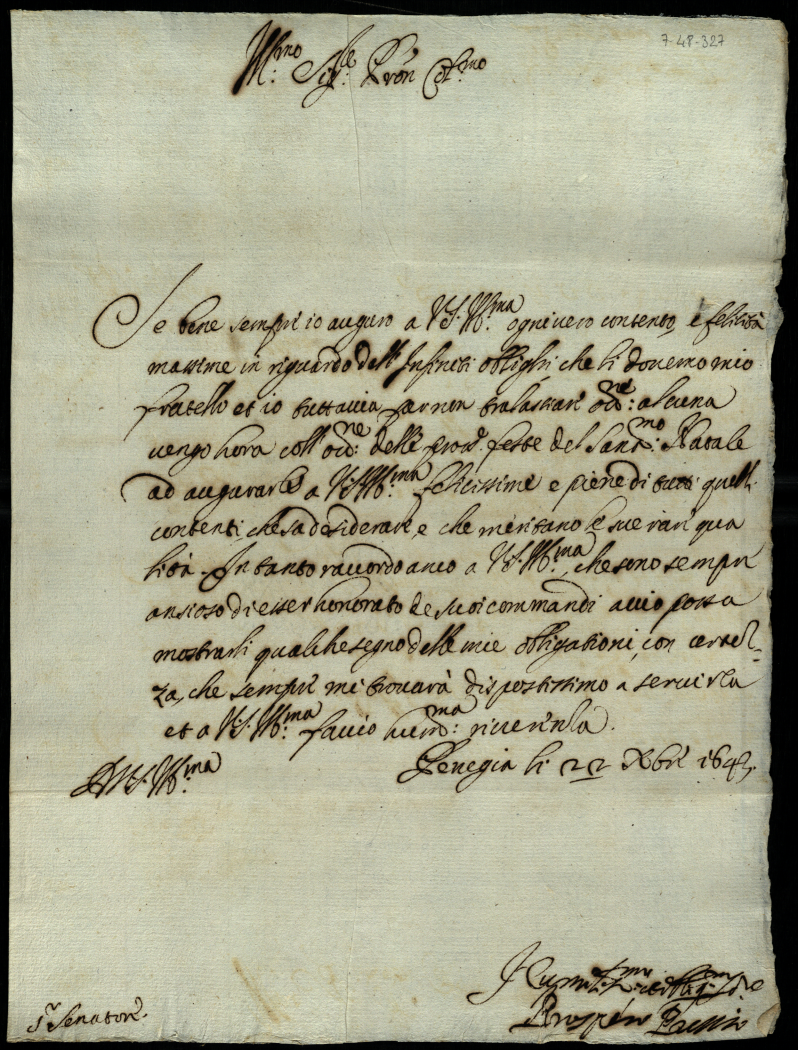 7-48-327
Ill.mo Sig.re Pron Col.mo
Se bene sempre io auguro a V.S. Ill.ma ogni vero contento, e felicità
massime in riguardo delli Infiniti oblighi che li dovemo mio
fratello et io tuttavia per non tralasciare occ.ne alcuna
vengo hora coll'occ.ne delle pros.e feste del Sant.mo Natale
ad augurarle a V.S. Ill.ma felicissime e piene di tutti quelli
contenti che sa desiderare, e che meritano le sue rare qua
lità. In tanto raccordo anco a V.S. Ill.ma, che sono sempre
ansioso di esser honorato de suoi commandi accio possa
mostrarli qualche segno delle mie obligationi, con certez-
za, che sempre mi trovarà dispostissimo a servirla
et a V.S. Ill.ma faccio hum.ma riverenza.
Venegia li 22 Xbre 164
D V.S. Ill.ma
Humiliss.mo et oblig.mo Ser.re
Prospero
S.r Senatore